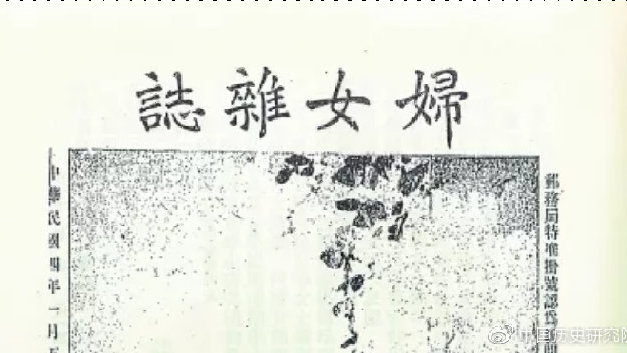 婦女雜誌
郵務局特准掛號認爲
中華民國四年一月五
中国历史研究院